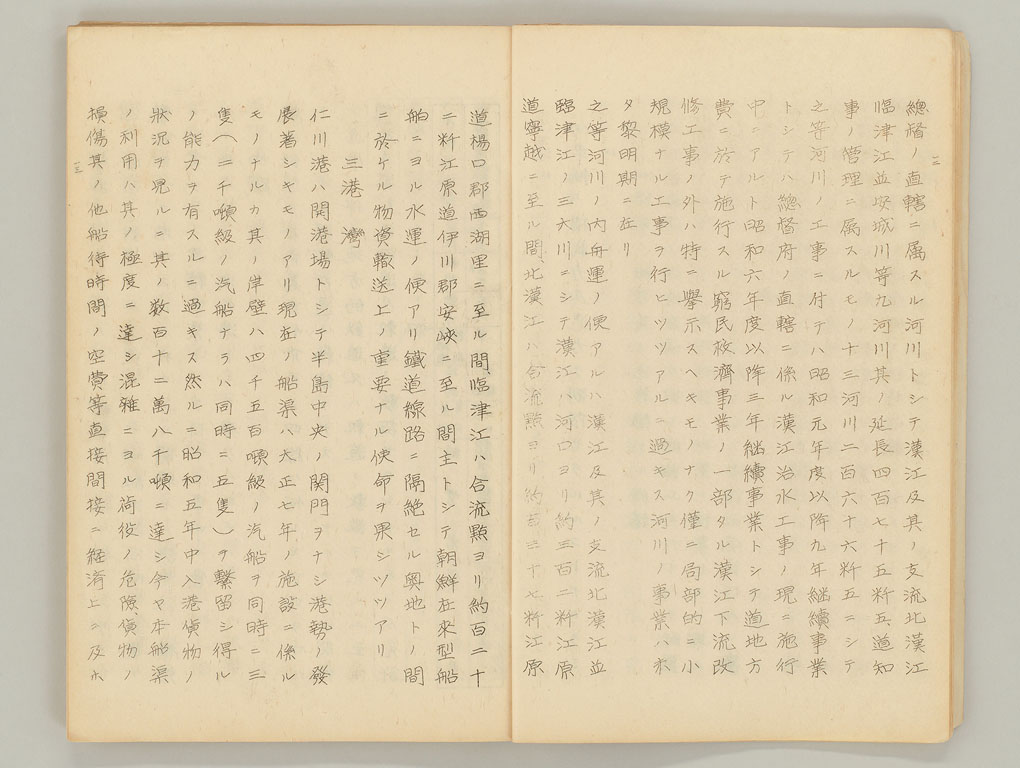 一二
總督ノ直轄ニ属スル河川トシテ漢江及其ノ支流北漢江
臨津江並城川等九河川其ノ延長四百七十五粁五道知
事ノ管理ニ属スルモノ十三河川二百六十六粁五ニシテ
之等河川ノ工事ニ付テハ昭和元年度以降九年継續事業
トシテハ總督府ノ直轄ニ係ル漢江治水工事ノ現ニ施行
中ニアルト昭和六年度以降三年継續事業トシテ道地方
費ニ於テ施行スル窮民救濟事業ノ一部タル漢江下流改
修工事ノ外ハ特ニ擧示スヘキモノナク僅ニ局部的ニ小
規模ナル工事ヲ行ヒツツアルニ過キス河川ノ事業ハ亦
タ黎明期ニ在リ
之等河川ノ内舟運ノ便アルハ漢江及其ノ支流北漢江並
臨津江ノ三大川ニシテ漢江ハ河口ヨリ約三百二粁江原
道寧越ニ至ル間北漢江ハ合流點ヨリ約百三十七粁江原
道楊口郡西湖里ニ至ル間臨津江ハ合流點ヨリ約百二十
二粁江原道伊川郡安峽ニ至ル間主トシテ朝鮮在來型船
舶ニヨル水運ノ便アリ鐵道線路ニ隔絶セル奥地トノ間
ニ於ケル物資輸送上重要ナル使命ヲ果シツツアリ
三港灣
仁川港ハ開港場トシテ半島中央ノ関門ヲナシ港勢ノ發
展著シキモノアリ現在ノ船渠ハ大正七年ノ施設ニ係ル
モノナルカ其ノ岸壁ハ四千五百噸級ノ汽船ヲ同時ニ三
隻(二千噸級ノ汽船ナラハ同時ニ五隻)ヲ繋留シ得ル
ノ能力ヲ有スルニ過キス然ルニ昭和五年中入港貨物ノ
狀況ヲ見ルニ其ノ数百十二萬八千噸ニ達シ今ヤ本船渠
ノ利用ハ其ノ極度ニ達シ混雑ニヨル荷役ノ危險貨物ノ
損傷其ノ他船得時間ノ空費等直接間接ニ経済上ニ及ホ
一三